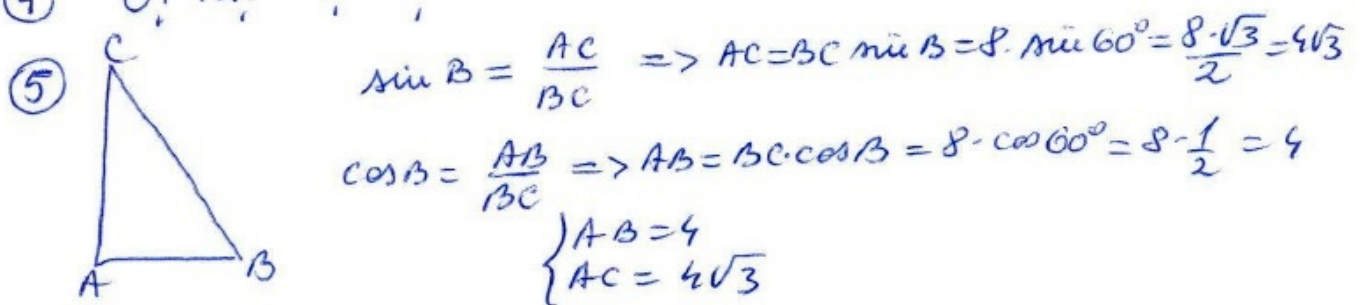 ⑤ C
sin B = AC/BC => AC=BC sin B = 8·sin 60° = 8·√3/2 = 4√3
cos B = AB/BC => AB = BC·cos B = 8·cos 60° = 8·1/2 = 4
{ AB = 4
AC = 4√3
A B